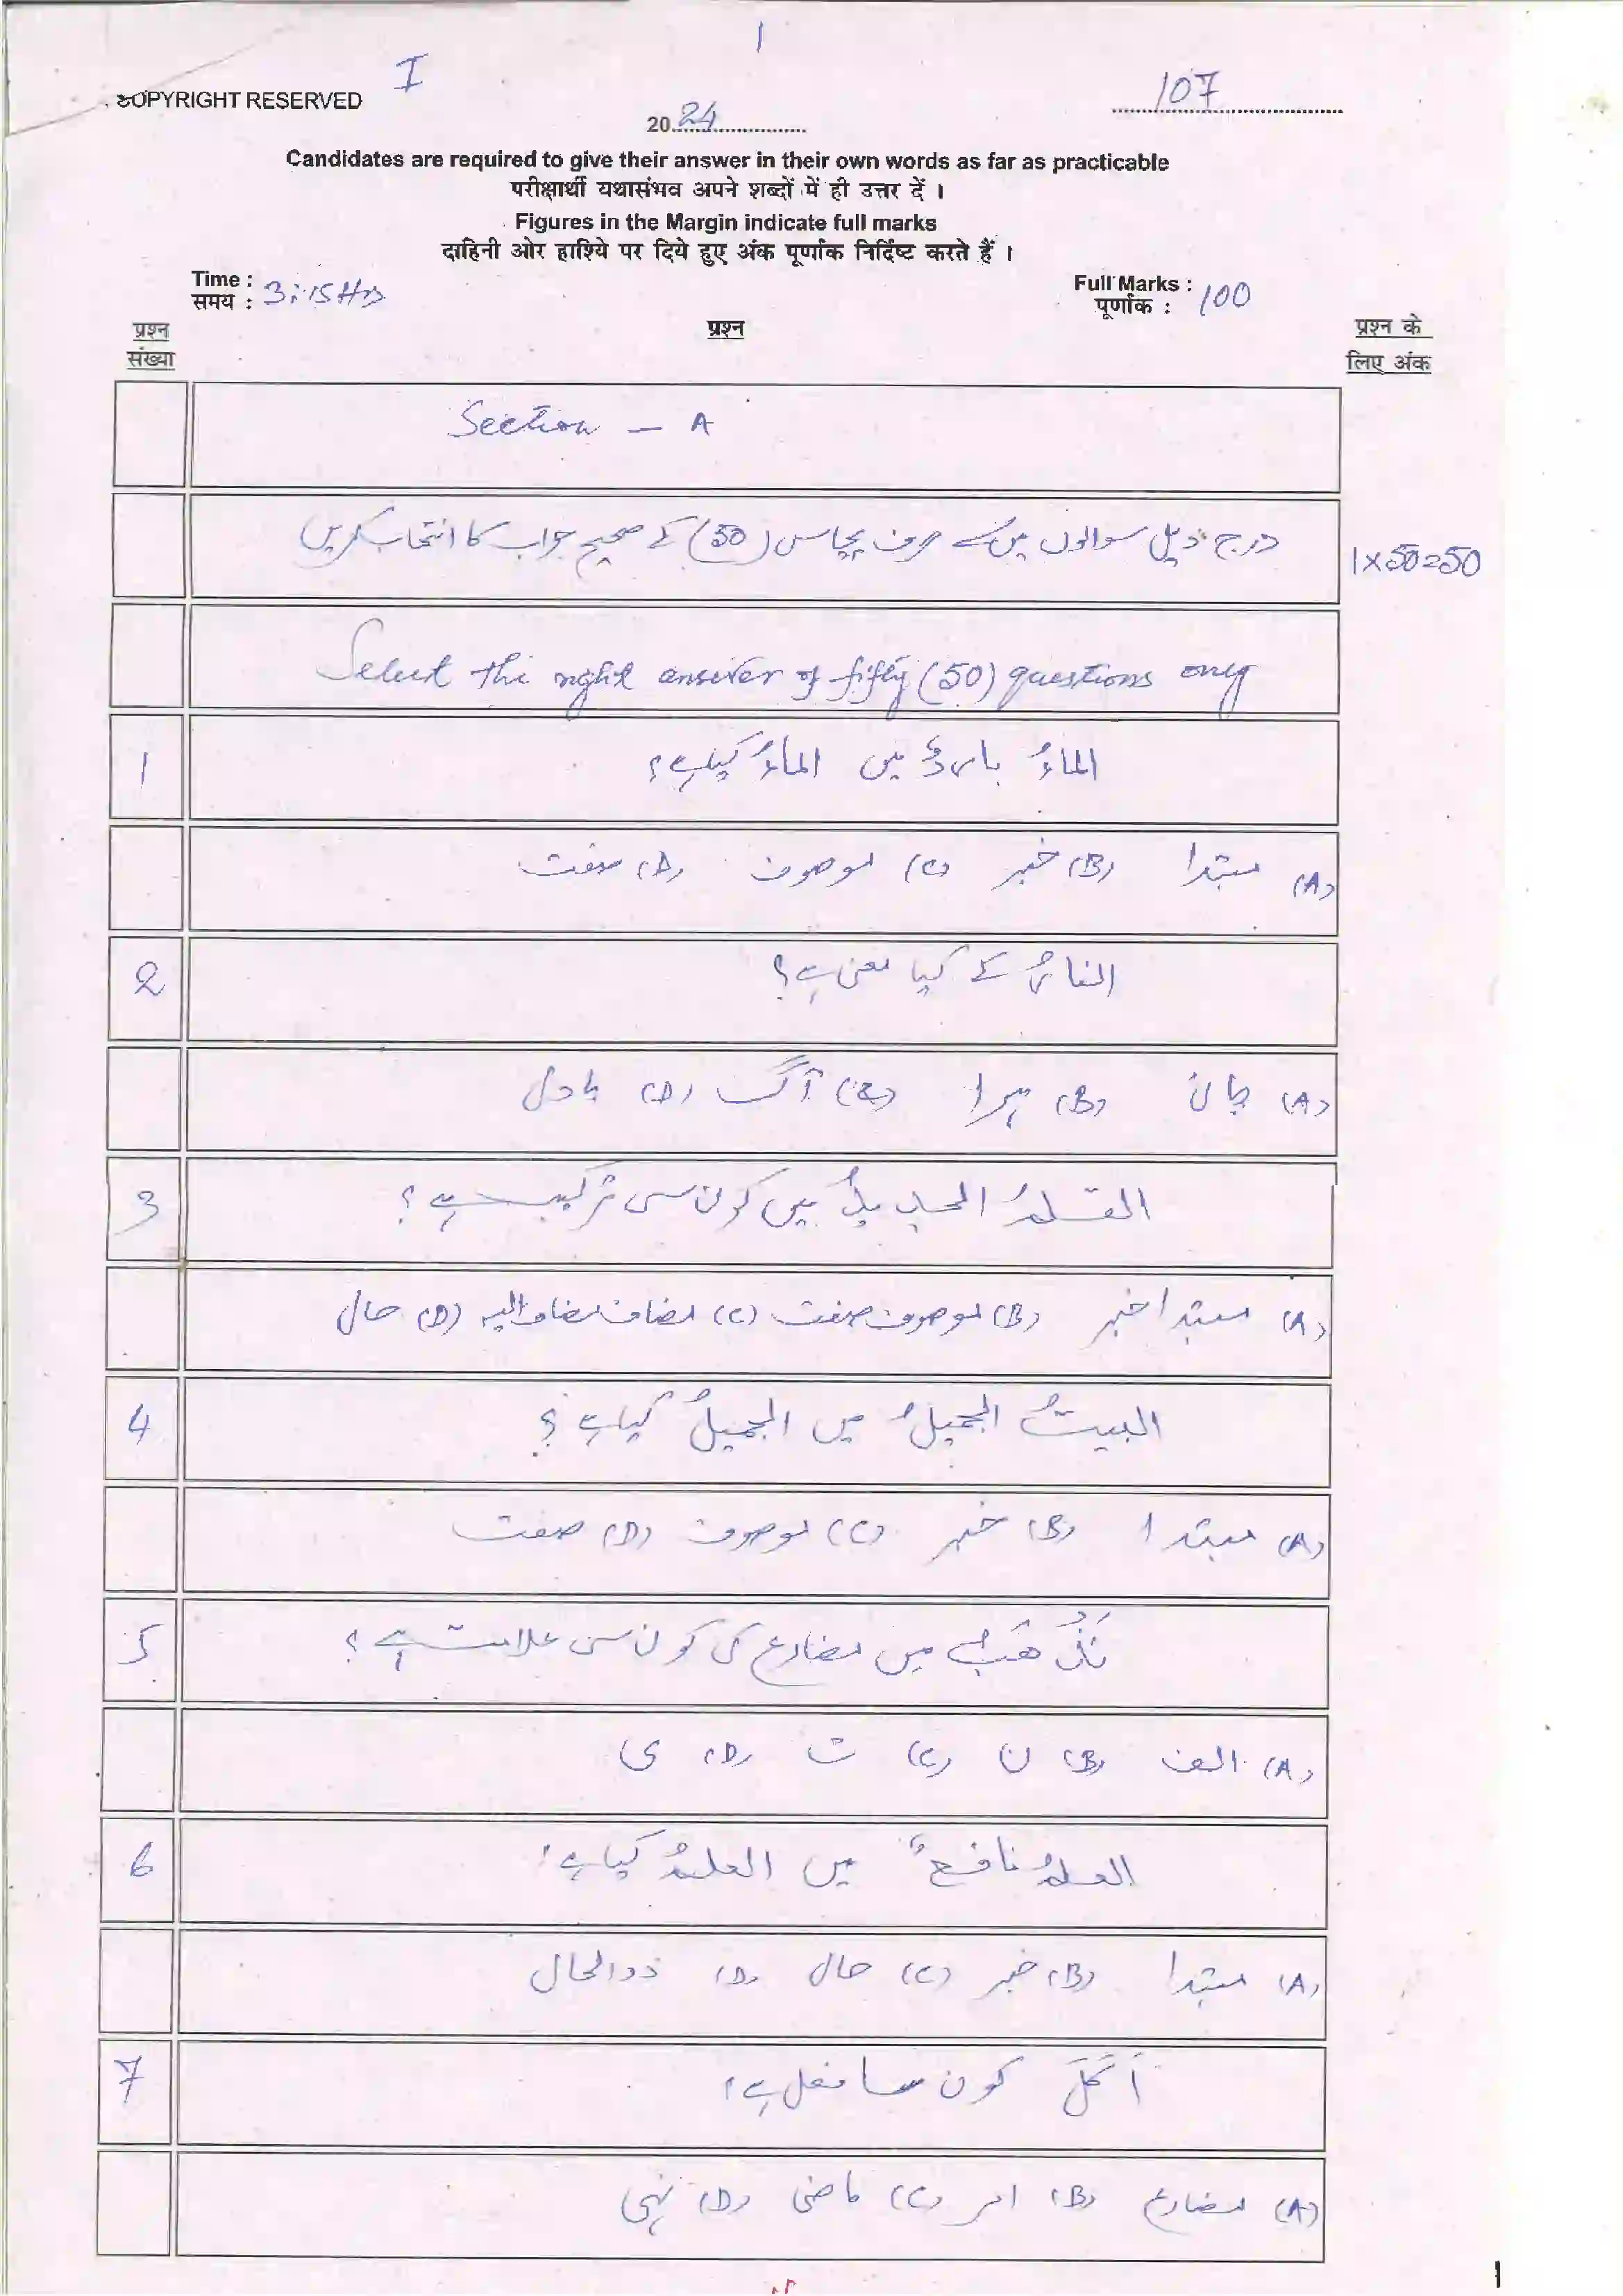 I
1
107
COPYRIGHT RESERVED
2024
Candidates are required to give their answer in their own words as far as practicable
परीक्षार्थी यथासंभव अपने शब्दों में ही उत्तर दें ।
Figures in the Margin indicate full marks
दाहिनी ओर हाशिये पर दिये हुए अंक पूर्णांक निर्दिष्ट करते हैं ।
Time : 3:15 Hrs
समय :
Full Marks : 100
पूर्णांक :
प्रश्न संख्या
प्रश्न
प्रश्न के लिए अंक
Section – A
درج ذیل سوالوں میں سے صرف پچاس (50) کے صحیح جواب کا انتخاب کریں
1x50=50
Select the right answer of fifty (50) questions only
1 الماءُ باردٌ میں الماءُ کیا ہے؟
(A) مبتدا (B) خبر (C) موصوف (D) صفت
2 النارُ کے کیا معنی ہے؟
(A) جان (B) ہرا (C) آگ (D) بادل
3 القلمُ الجدیدُ میں کون سی ترکیب ہے؟
(A) مبتدا خبر (B) موصوف صفت (C) مضاف مضاف الیہ (D) حال
4 البیتُ الجمیلُ میں الجمیلُ کیا ہے؟
(A) مبتدا (B) خبر (C) موصوف (D) صفت
5 نَذْھَبُ میں مضارع کی کون سی علامت ہے؟
(A) الف (B) ن (C) ت (D) ی
6 العلمُ نافعٌ میں العلمُ کیا ہے؟
(A) مبتدا (B) خبر (C) حال (D) ذوالحال
7 اَکَلَ کون سا فعل ہے؟
(A) مضارع (B) امر (C) ماضی (D) نہی